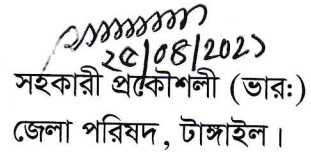 ২৫/০৪/২০২১
সহকারী প্রকৌশলী (ভার:)
জেলা পরিষদ, টাঙ্গাইল।